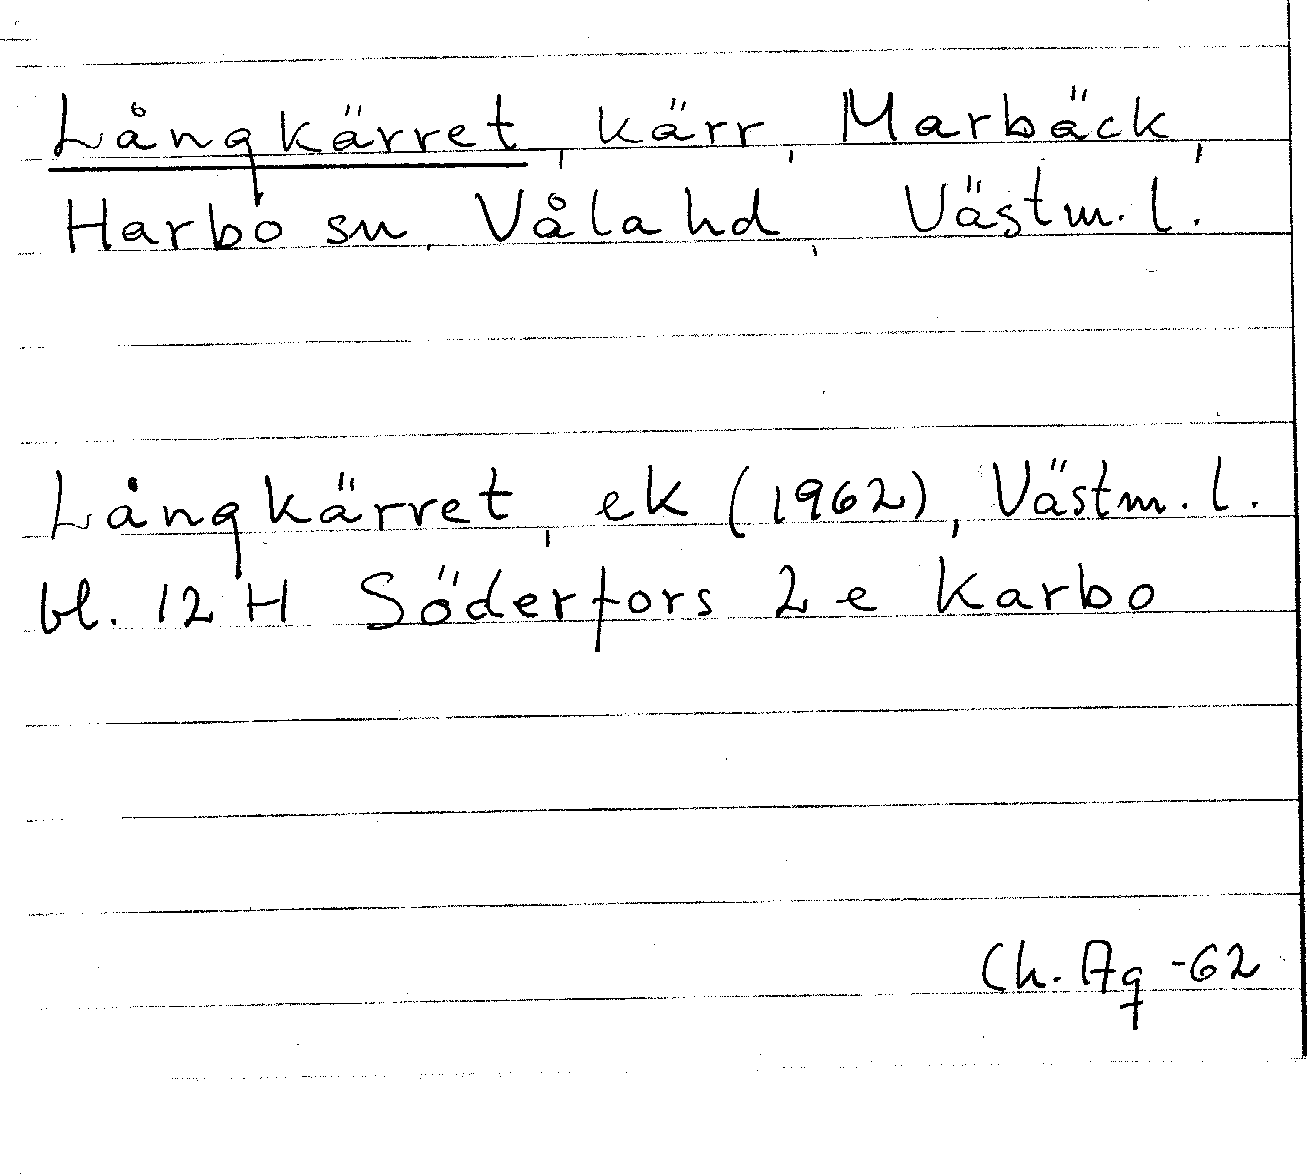 Långkärret, kärr, Marbäck,
Harbo sn, Våla hd, Västm. l.
Långkärret, ek (1962), Västm. l.
bl. 12 H Söderfors 2 e Karbo
Ch. Aq -62